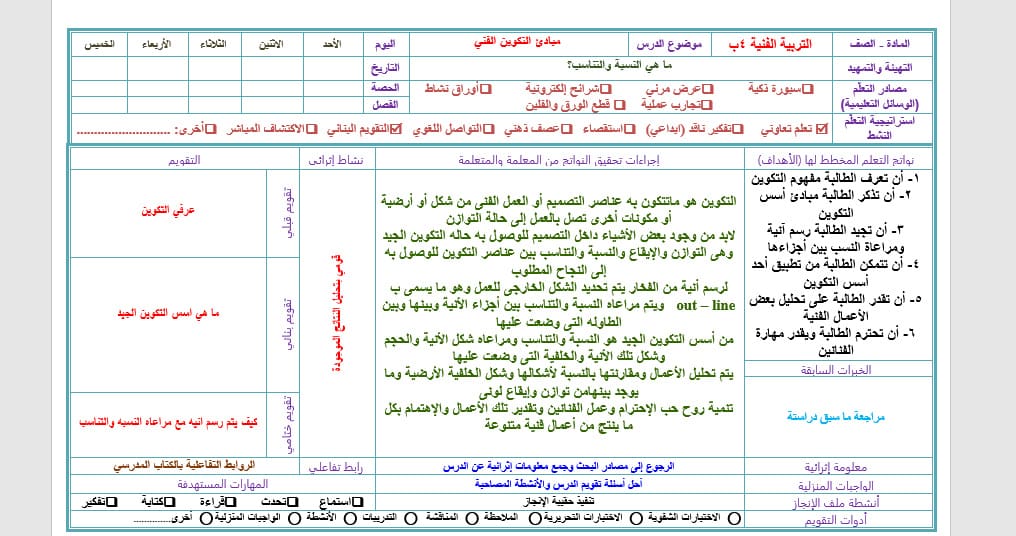 المادة - الصف
التربية الفنية ٤ب
موضوع الدرس
مبادئ التكوين الفني
اليوم
الأحد
الاثنين
الثلاثاء
الأربعاء
الخميس
التهيئة والتمهيد
ما هي النسبة والتناسب؟
التاريخ
مصادر التعلّم
(الوسائل التعليمية)
سبورة ذكية
عرض مرئي
شرائح إلكترونية
أوراق نشاط
تجارب عملية
قطع الورق والفلين
الحصة
الفصل
استراتيجية التعلّم
النشط
تعلم تعاوني
تفكير ناقد (إبداعي)
استقصاء
عصف ذهني
التواصل اللغوي
التقويم البنائي
الاكتشاف المباشر
أخرى: ............................
نواتج التعلم المخطط لها (الأهداف)
إجراءات تحقيق النواتج من المعلمة والمتعلمة
نشاط إثرائى
التقويم
١- أن تعرف الطالبة مفهوم التكوين
٢- أن تذكر الطالبة مبادئ أسس
التكوين
٣- أن تجيد الطالبة رسم آنية
ومراعاة النسب بين أجزاءها
٤- أن تتمكن الطالبة من تطبيق أحد
أسس التكوين
٥- أن تقدر الطالبة على تحليل بعض
الأعمال الفنية
٦- أن تحترم الطالبة ويقدر مهارة
الفنانين
الخبرات السابقة
مراجعة ما سبق دراستة
التكوين هو ماتتكون به عناصر التصميم أو العمل الفنى من شكل أو أرضية
أو مكونات أخرى تصل بالعمل إلى حالة التوازن
لابد من وجود بعض الأشياء داخل التصميم للوصول به حاله التكوين الجيد
وهى التوازن والإيقاع والنسبة والتناسب بين عناصر التكوين للوصول به
إلى النجاح المطلوب
لرسم أنية من الفخار يتم تحديد الشكل الخارجى للعمل وهو ما يسمى ب
out – line ويتم مراعاه النسبة والتناسب بين أجزاء الآنية وبينها وبين
الطاوله التى وضعت عليها
من أسس التكوين الجيد هو النسبة والتناسب ومراعاه شكل الآنية والحجم
وشكل تلك الآنية والخلفية التى وضعت عليها
يتم تحليل الأعمال ومقارنتها بالنسبة لأشكالها وشكل الخلفية الأرضية وما
يوجد بينهامن توازن وإيقاع لونى
تنمية روح حب الإحترام وعمل الفنانين وتقدير تلك الأعمال والإهتمام بكل
ما ينتج من أعمال فنية متنوعة
قومي بتحليل النتائج الموجودة
تقويم قبلي
عرفي التكوين
تقويم بنائي
ما هي اسس التكوين الجيد
تقويم ختامي
كيف يتم رسم انيه مع مراعاه النسبه والتناسب
معلومة إثرائية
الرجوع إلى مصادر البحث وجمع معلومات إثرائية عن الدرس
رابط تفاعلي
الروابط التفاعلية بالكتاب المدرسي
الواجبات المنزلية
أحل أسئلة تقويم الدرس والأنشطة المصاحبة
المهارات المستهدفة
أنشطة ملف الإنجاز
تنفيذ حقيبة الإنجاز
استماع
تحدث
قراءة
كتابة
تفكير
أدوات التقويم
الاختبارات الشفوية
الاختبارات التحريرية
الملاحظة
المناقشة
التدريبات
الأنشطة
الواجبات المنزلية
أخرى...............